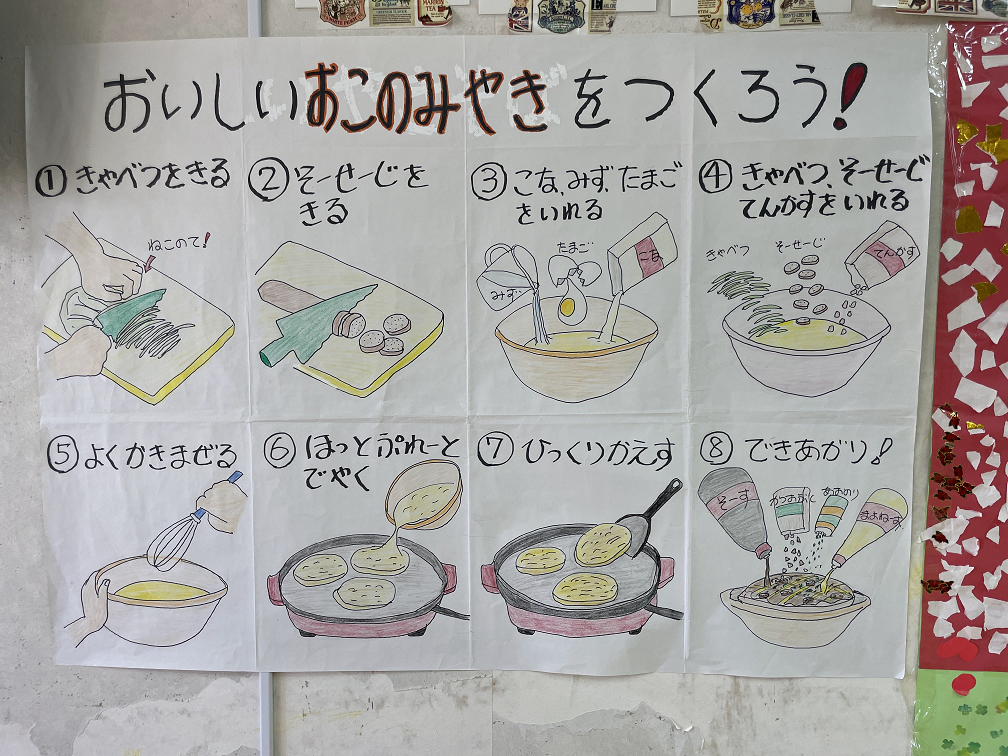 おいしいおこのみやきをつくろう!
①きゃべつをきる
ねこのて!
②そーせーじを
きる
③こな、みず、たまご
をいれる
みず
たまご
こな
④きゃべつ、そーせーじ
てんかすをいれる
きゃべつ
そーせーじ
てんかす
⑤よくかきまぜる
⑥ほっとぷれーと
でやく
⑦ひっくりかえす
⑧できあがり!
そーす
かつおぶし
あおのり
まよねーず